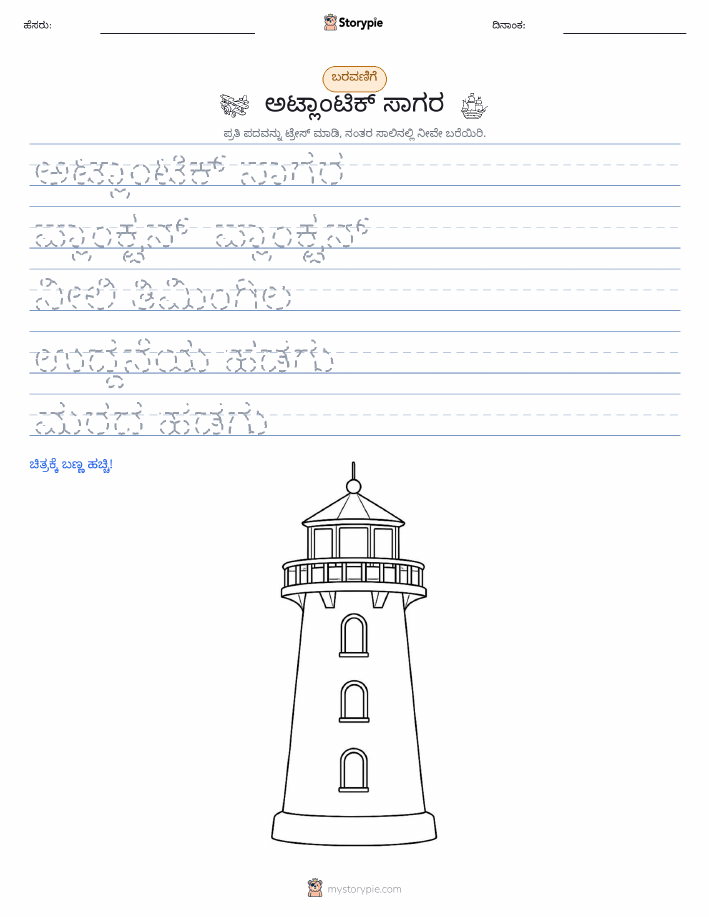 ಹೆಸರು:
Storypie
ದಿನಾಂಕ:
ಬರವಣಿಗೆ
ಅಟ್ಲಾಂಟಿಕ್ ಸಾಗರ
ಪ್ರತಿ ಪದವನ್ನು ಟ್ರೇಸ್ ಮಾಡಿ, ನಂತರ ಸಾಲಿನಲ್ಲಿ ನೀವೇ ಬರೆಯಿರಿ.
ಅಟ್ಲಾಂಟಿಕ್ ಸಾಗರ
ಪ್ಲಾಂಕ್ಟನ್ ಪ್ಲಾಂಕ್ಟನ್
ನೀಲಿ ತಿಮಿಂಗಿಲ
ಉದ್ದನೆಯ ಹಡಗು
ಮರದ ಹಡಗು
ಚಿತ್ರಕ್ಕೆ ಬಣ್ಣ ಹಚ್ಚಿ!
mystorypie.com